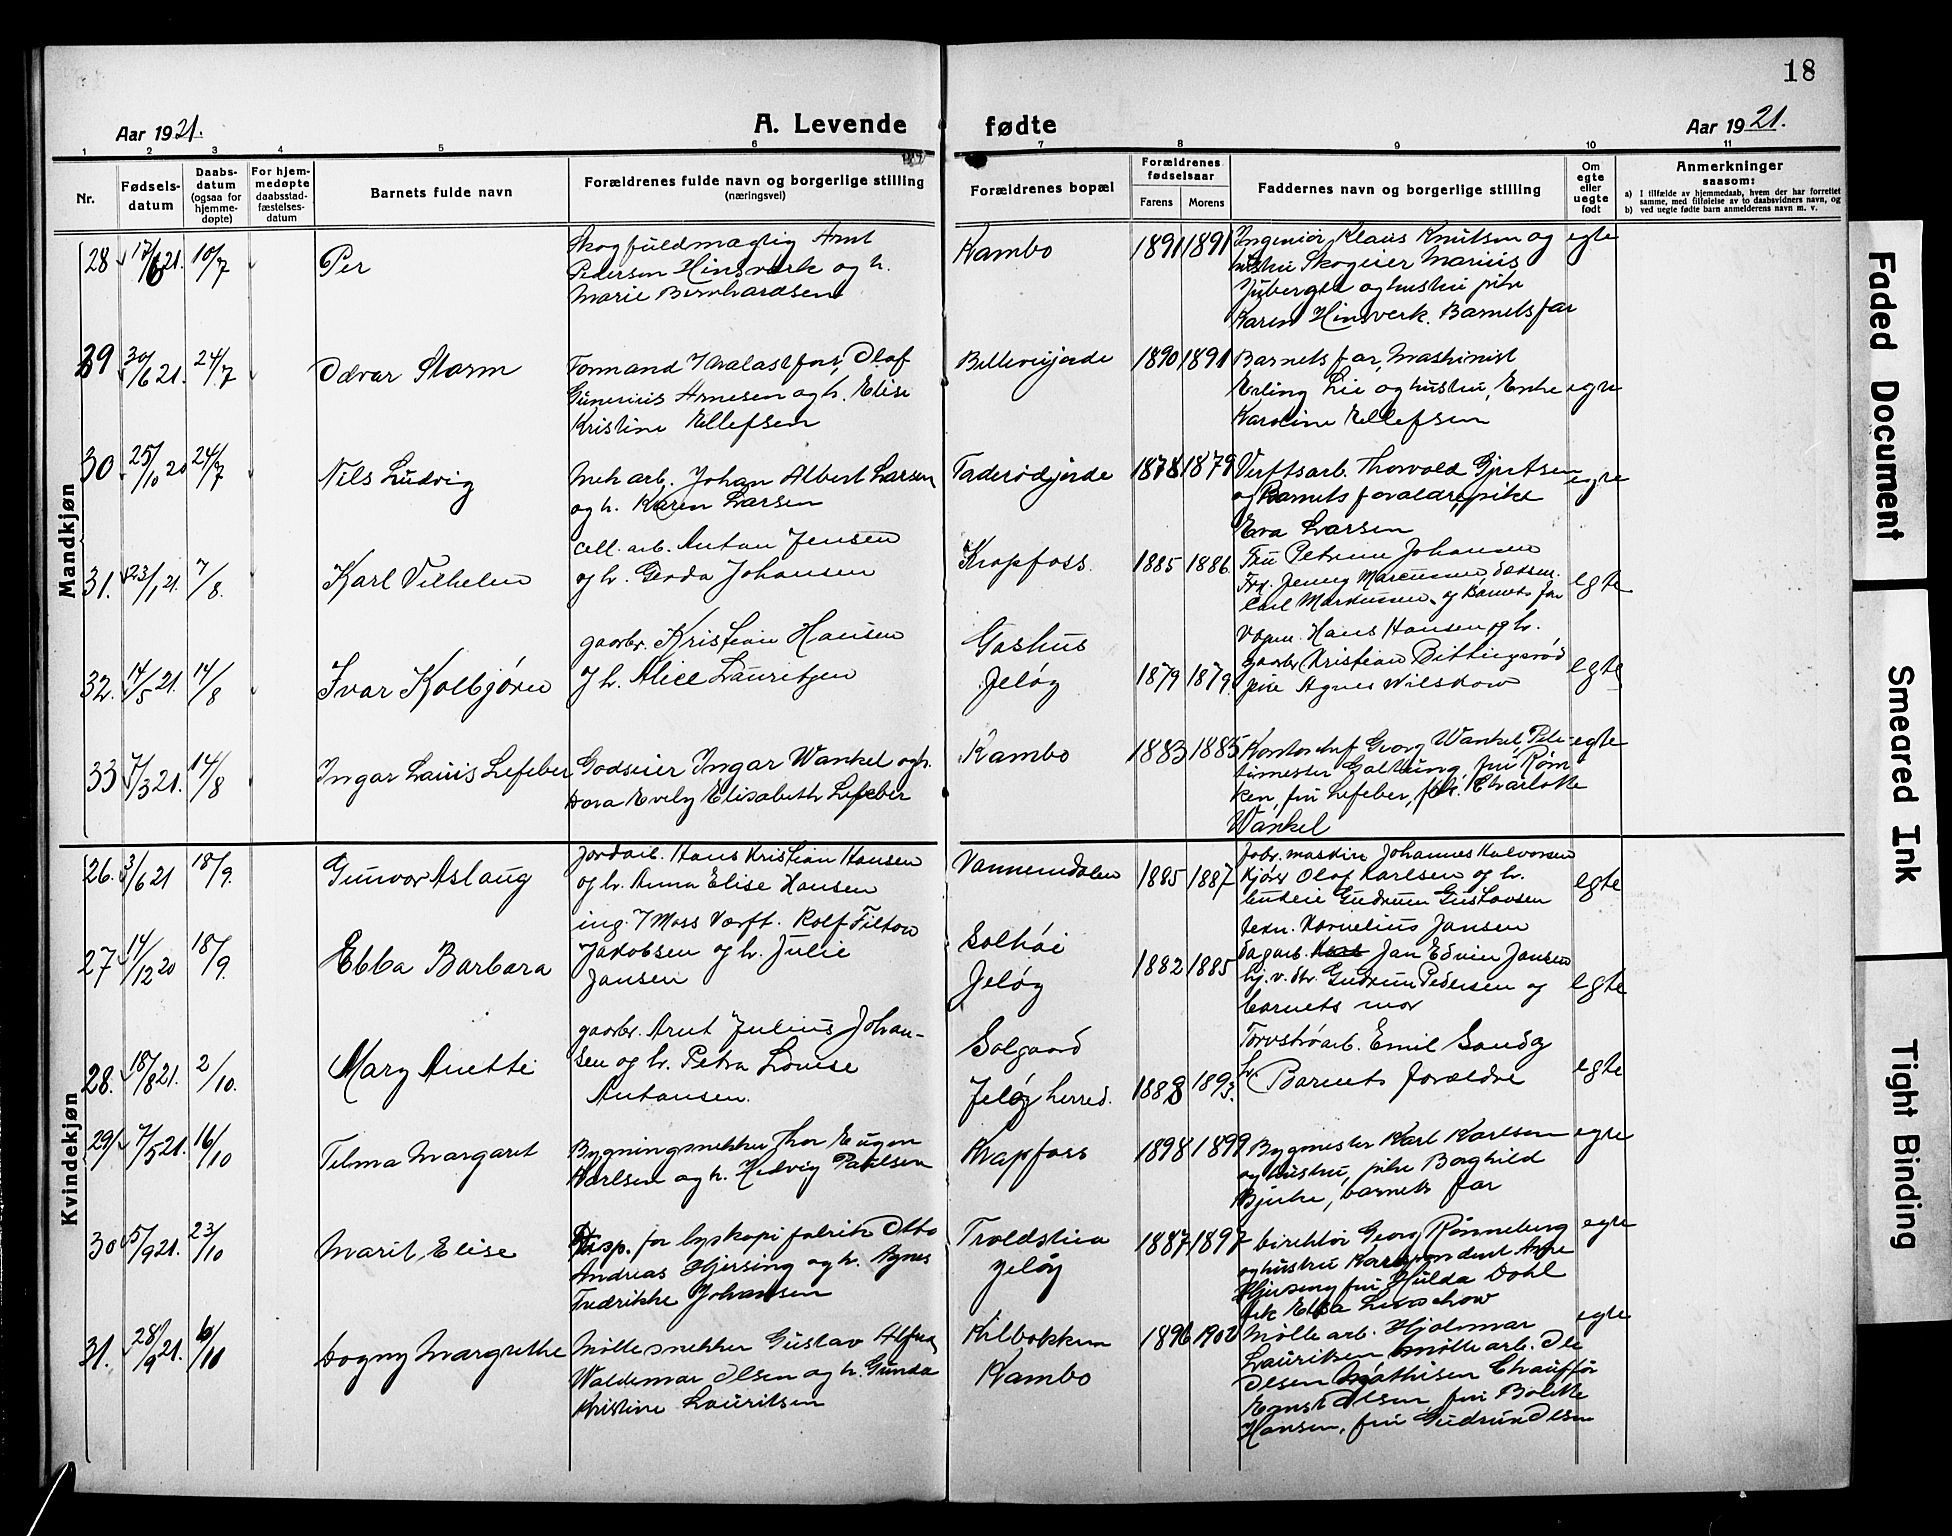 18
Aar 1921.
A. Levende
fødte
Aar 1921.
1 2 3 4 5 6 7 8 9 10 11
Nr.
Fødsels-
datum
Daabs-
datum
(ogsaa for
hjemme-
døpte)
For hjem-
medøpte
daabsstad-
fæstelses-
datum
Barnets fulde navn
Forældrenes fulde navn og borgerlige stilling
(næringsvei)
Forældrenes bopæl
Forældrenes
fødselsaar
Farens Morens
Faddernes navn og borgerlige stilling
Om
egte
eller
uegte
født
Anmerkninger
saasom:
a) I tilfælde av hjemmedaab, hvem der har forrettet
samme, med tilføielse av to daabsvidners navn, og
b) ved uegte fødte barn anmelderens navn m. v.
Mandkjøn
28 17/6 21. 10/7
Per
Skogfuldmægtig Arnt
Pedersen Hinsverk og h.
Marie Bernhardsen
Kambo
1891 1891
Ingeniør Klaus Knutsen og
hustru Skogeier Marius
og hustru pike
Karen Hinsverk. Barnets far
egte
29 30/6 21. 24/7
Odvar Storm
Formand Olaf
Gunerius Arnesen og h. Elise
Kristine Ellefsen
Bellevuejorde
1890 1891
Barnets far, Maskinist
Erling Lie og hustru, Enke
Karoline Ellefsen
egte
30 25/10 20 24/7
Nils Ludvig
Mek arb. Johan Albert Larsen
og h. Karen Larsen
Taderødjorde
1878 1879
Verftsarb. Thorvald Gjertsen
og Barnets forældre, pike
Eva Larsen
egte
31. 23/1 21. 7/8.
Karl Vilhelm
cell. arb. Anton Jensen
og h. Gerda Johansen
Krapfoss.
1885 1886.
Fru Petrine Johansen
Frk. Jenny Marcussen
Carl Markussen og Barnets far
egte
32. 14/5 21. 14/8
Ivar Kolbjørn
gaardbr. Kristian Hansen
og h. Alice Lauritzen
Gashus
Jeløy
1879 1879.
Hans Hansen og h.
gaardbr Kristian Bittingsrød
pike Agnes Wilskow
egte
33 7/3 21. 14/8
Ingar Lauis Lefeber
Godseier Ingar Wankel og h.
Dora Evely Elisabeth Lefeber
Kambo
1883 1885
Kontorchef Georg Wankel,
Galtung, fru Røm-
ken, fru Lefeber, frk. Charlotte
Wankel
egte
Kvindekjøn
26. 3/6 21 18/9.
Gunvor Aslaug
Jordarb. Hans Kristian Hansen
og h. Anna Elise Hansen
Vannemdalen
1885 1887
fabr. maskin Johannes Halvorsen
kjører Olaf Karlsen og h.
budeie Gudrun Gustavsen
egte
27 14/12 20 18/9.
Ebba Barbara
ing. Moss Værft. Rolf Filton
Jakobsen og h. Julie
Jansen
Solhøi
Jeløy
1882 1885
tekn. Kornelius Jansen
dagarb. Jan Edvin Jansen
Gudrun Pedersen og
barnets mor
egte
28. 18/8 21. 2/10.
Mary Anette
gaardbr. Arnt Julius Johan-
sen og h. Petra Lovise
Antonsen.
Solgaard
Jeløy herred.
1888 1893.
Torvstrøarb. Emil Sand og
h. Barnets forældre
egte
29 7/5 21. 16/10
Telma Margaret
Bygningsnekker Thor Eugen
Karlsen og h. Hedvig Paulsen
Krapfoss
1898 1899
Bygmester Karl Karlsen
og hustru, pike Borghild
Bjerke, barnets far
egte
30 5/9 21. 23/10
Marit, Elise
Disp. for lyskopi fabrik Otto
Andreas Hjersing og h. Agnes
Fredrikke Johansen
Troldstien
Jeløy
1887 1897
Direktør Georg Rønneberg
og hustru Korrespondent Arne
Hjersing fru Hulda Dahl
frk Ebba
egte
31. 28/9 21. 6/11
Dagny Margrethe
Møllesnekker Gustav Alfred
Waldemar Olsen og h. Gunda
Kristine Lauritsen
Kilbakken
Kambo
1896 1902
Mølle arb. Hjalmar
Lauritsen mølle arb. Ole
Olsen Mathisen Chauffør
Ernst Olsen, fru Bolette
Hansen, fru Gudrun Olsen
egte
Faded Document
Smeared Ink
Tight Binding